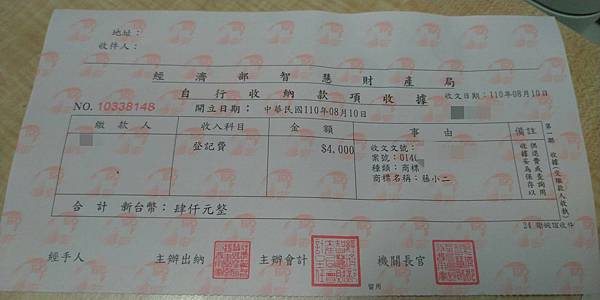 地址:
收件人:
經濟部智慧財產局
自行收納款項收據
收文日期:110年08月10日
NO. 10338148
開立日期: 中華民國110年08月10日
繳款人 收入科目 金額 事由 備註
登記費 $4,000
收文文號:
案號:014
種類:商標
商標名稱:孫小二
供退費或查詢用
收據妥為保存以
第一聯 收據(交繳款人收執)
合計 新台幣:肆仟元整
經手人 主辦出納 主辦會計 機關長官